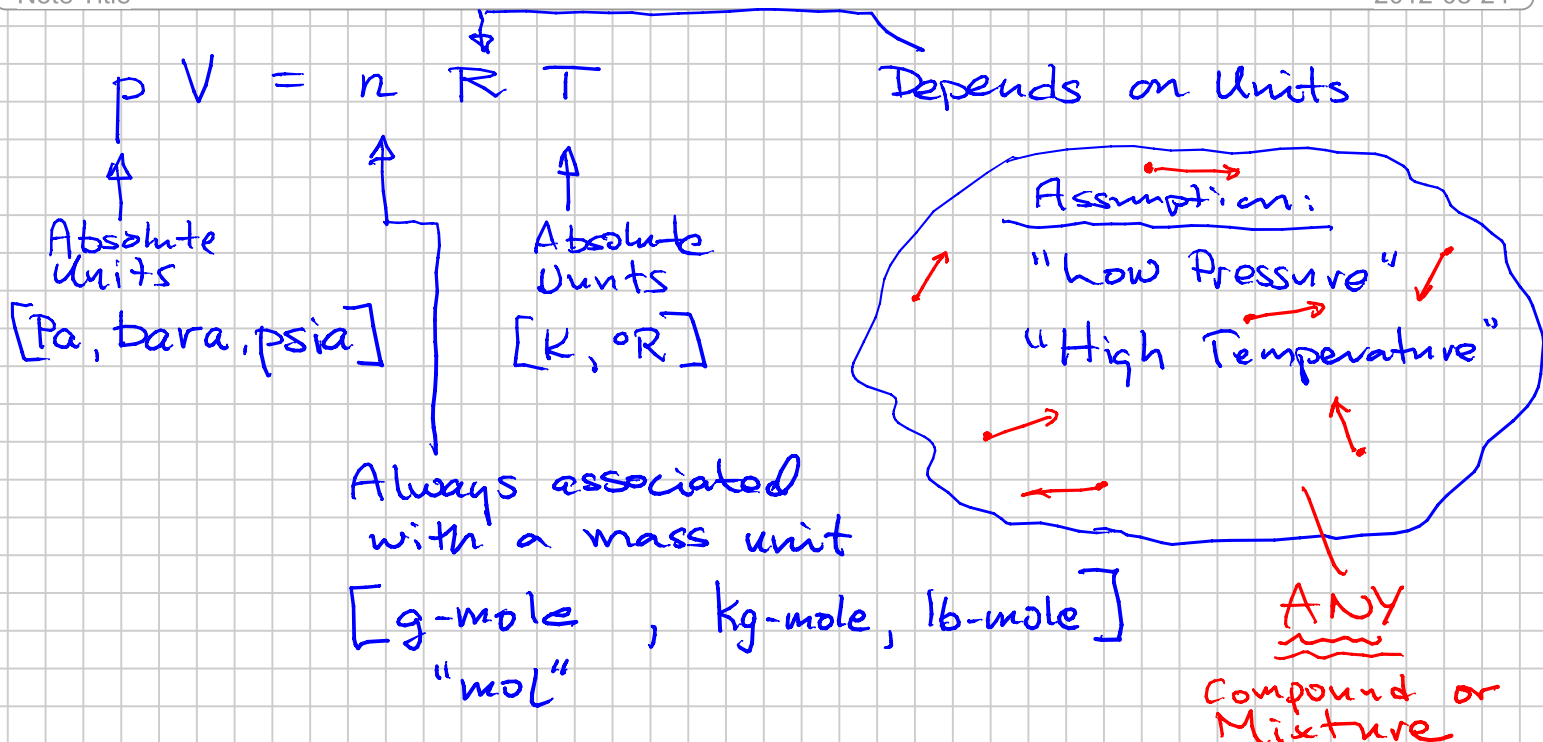 Note Title
2012-08-21
p V = n R T
Depends on Units
Absolute
Units
[Pa, bara, psia]
Absolute
Uunts
[K, °R]
Assumption:
"Low Pressure"
"High Temperature"
Always associated
with a mass unit
[g-mole , kg-mole, lb-mole]
"mol"
ANY
Compound or
Mixture